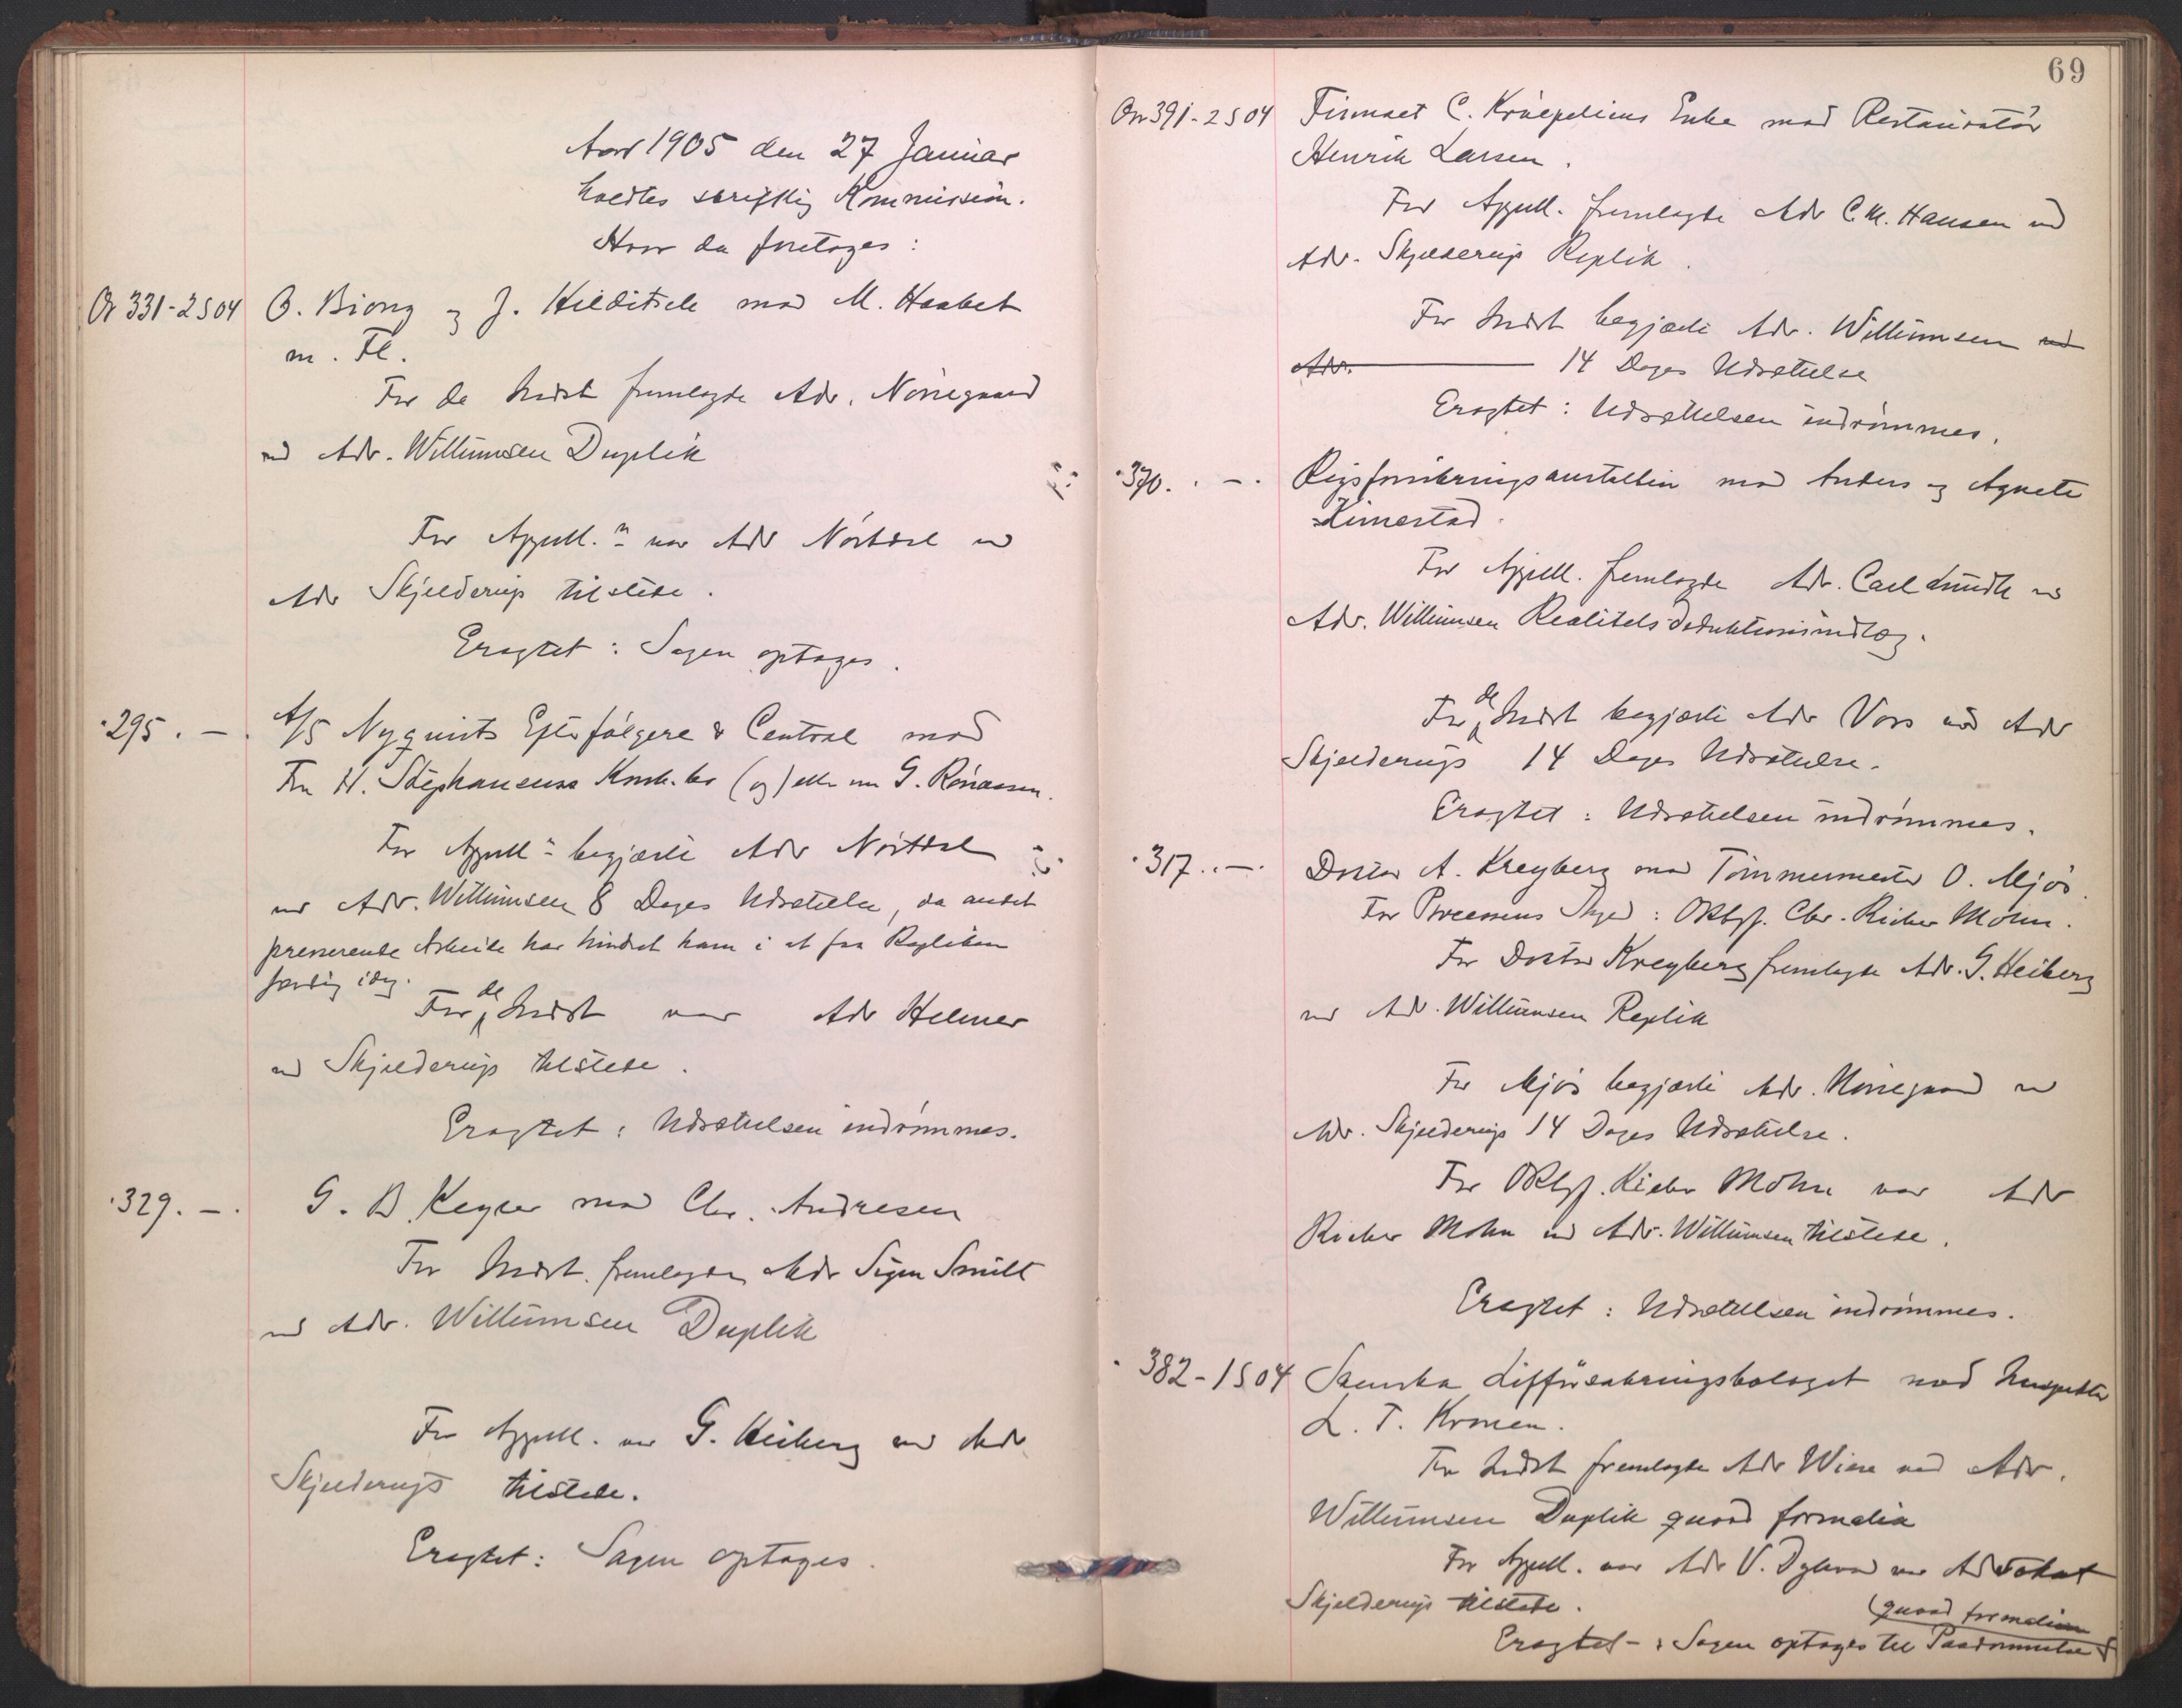 Aar 1905 den 27 Januar
holdtes skriftlig Kommission.
Hvor da foretoges:
Or 331-2S04 O. Biong og J. Hilditsch mod M. Haabet
m. Fl.
For de Indst fremlagde Adv. Nørregaard
ved Adv. Willumsen Duplik
For Appell. var Adv Nørdal ved
Adv Skjelderup tilstede.
Eragtet: Sagen optages.
" 295. - . A/S Nyquists Efterfølgere & Central mod
Fru H. Stephansens Konk.bo (og) eller G. Rønaasen.
For Appell begjærte Adv Nørdal
ved Adv. Willumsen 8 Dages Udsættelse, da andet
presserende Arbeide har hindret ham i at faa Repliken
færdig idag.
For de Indst var Adv Helmer
ved Skjelderup tilstede.
Eragtet: Udsættelsen indrømmes.
" 329. - . G. B. Keyser mod Chr. Andresen
For Indst. fremlagde Adv Sigm Smith
ved Adv. Willumsen Duplik
For Appell. var G. Heiberg ved Adv
Skjelderup tilstede.
Eragtet: Sagen optages.
69
Or 391-2S04 Firmaet C. Kruepelins Enke mod Restauratør
Henrik Larsen.
For Appell. fremlagde Adv C. M. Hansen ved
Adv. Skjelderup Replik.
For Indst begjærte Adv. Willumsen ved
Adv. 14 Dages Udsættelse
Eragtet: Udsættelsen indrømmes.
" 370. . - . Rigsforsikringsanstalten mod Anders og Agnete
Kimestad.
For Appell. fremlagde Adv. Carl Lundh ved
Adv. Willumsen Realitetsdeduktionsindlæg.
For de Indst begjærte Adv Voss ved Adv
Skjelderup 14 Dages Udsættelse.
Eragtet: Udsættelsen indrømmes.
" 317. . - . Doktor A. Kreyberg mod Tømmermester O. Mjøs.
For Processens Skyld: ORsgf. Chr. Richer Mohn.
For Doktor Kreyberg fremlagde Adv. G. Heiberg
ved Adv. Willumsen Replik
For Mjøs begjærte Adv. Nørregaard ved
Adv. Skjelderup 14 Dages Udsættelse.
For ORsgf. Richer Mohn var Adv
Richer Mohn ved Adv. Willumsen tilstede.
Eragtet: Udsættelsen indrømmes.
" 382-1S04 Svenska Lifförsäkringsbolaget mod Inspektør
L. T. Kromen.
For Indst fremlagde Adv Wiese ved Adv.
Willumsen Duplik quoad formalia
For Appell. var Adv V. Dybwad ved Advokat
Skjelderup tilstede.
(quoad formalia
Eragtet: Sagen optages til Paadømmelse